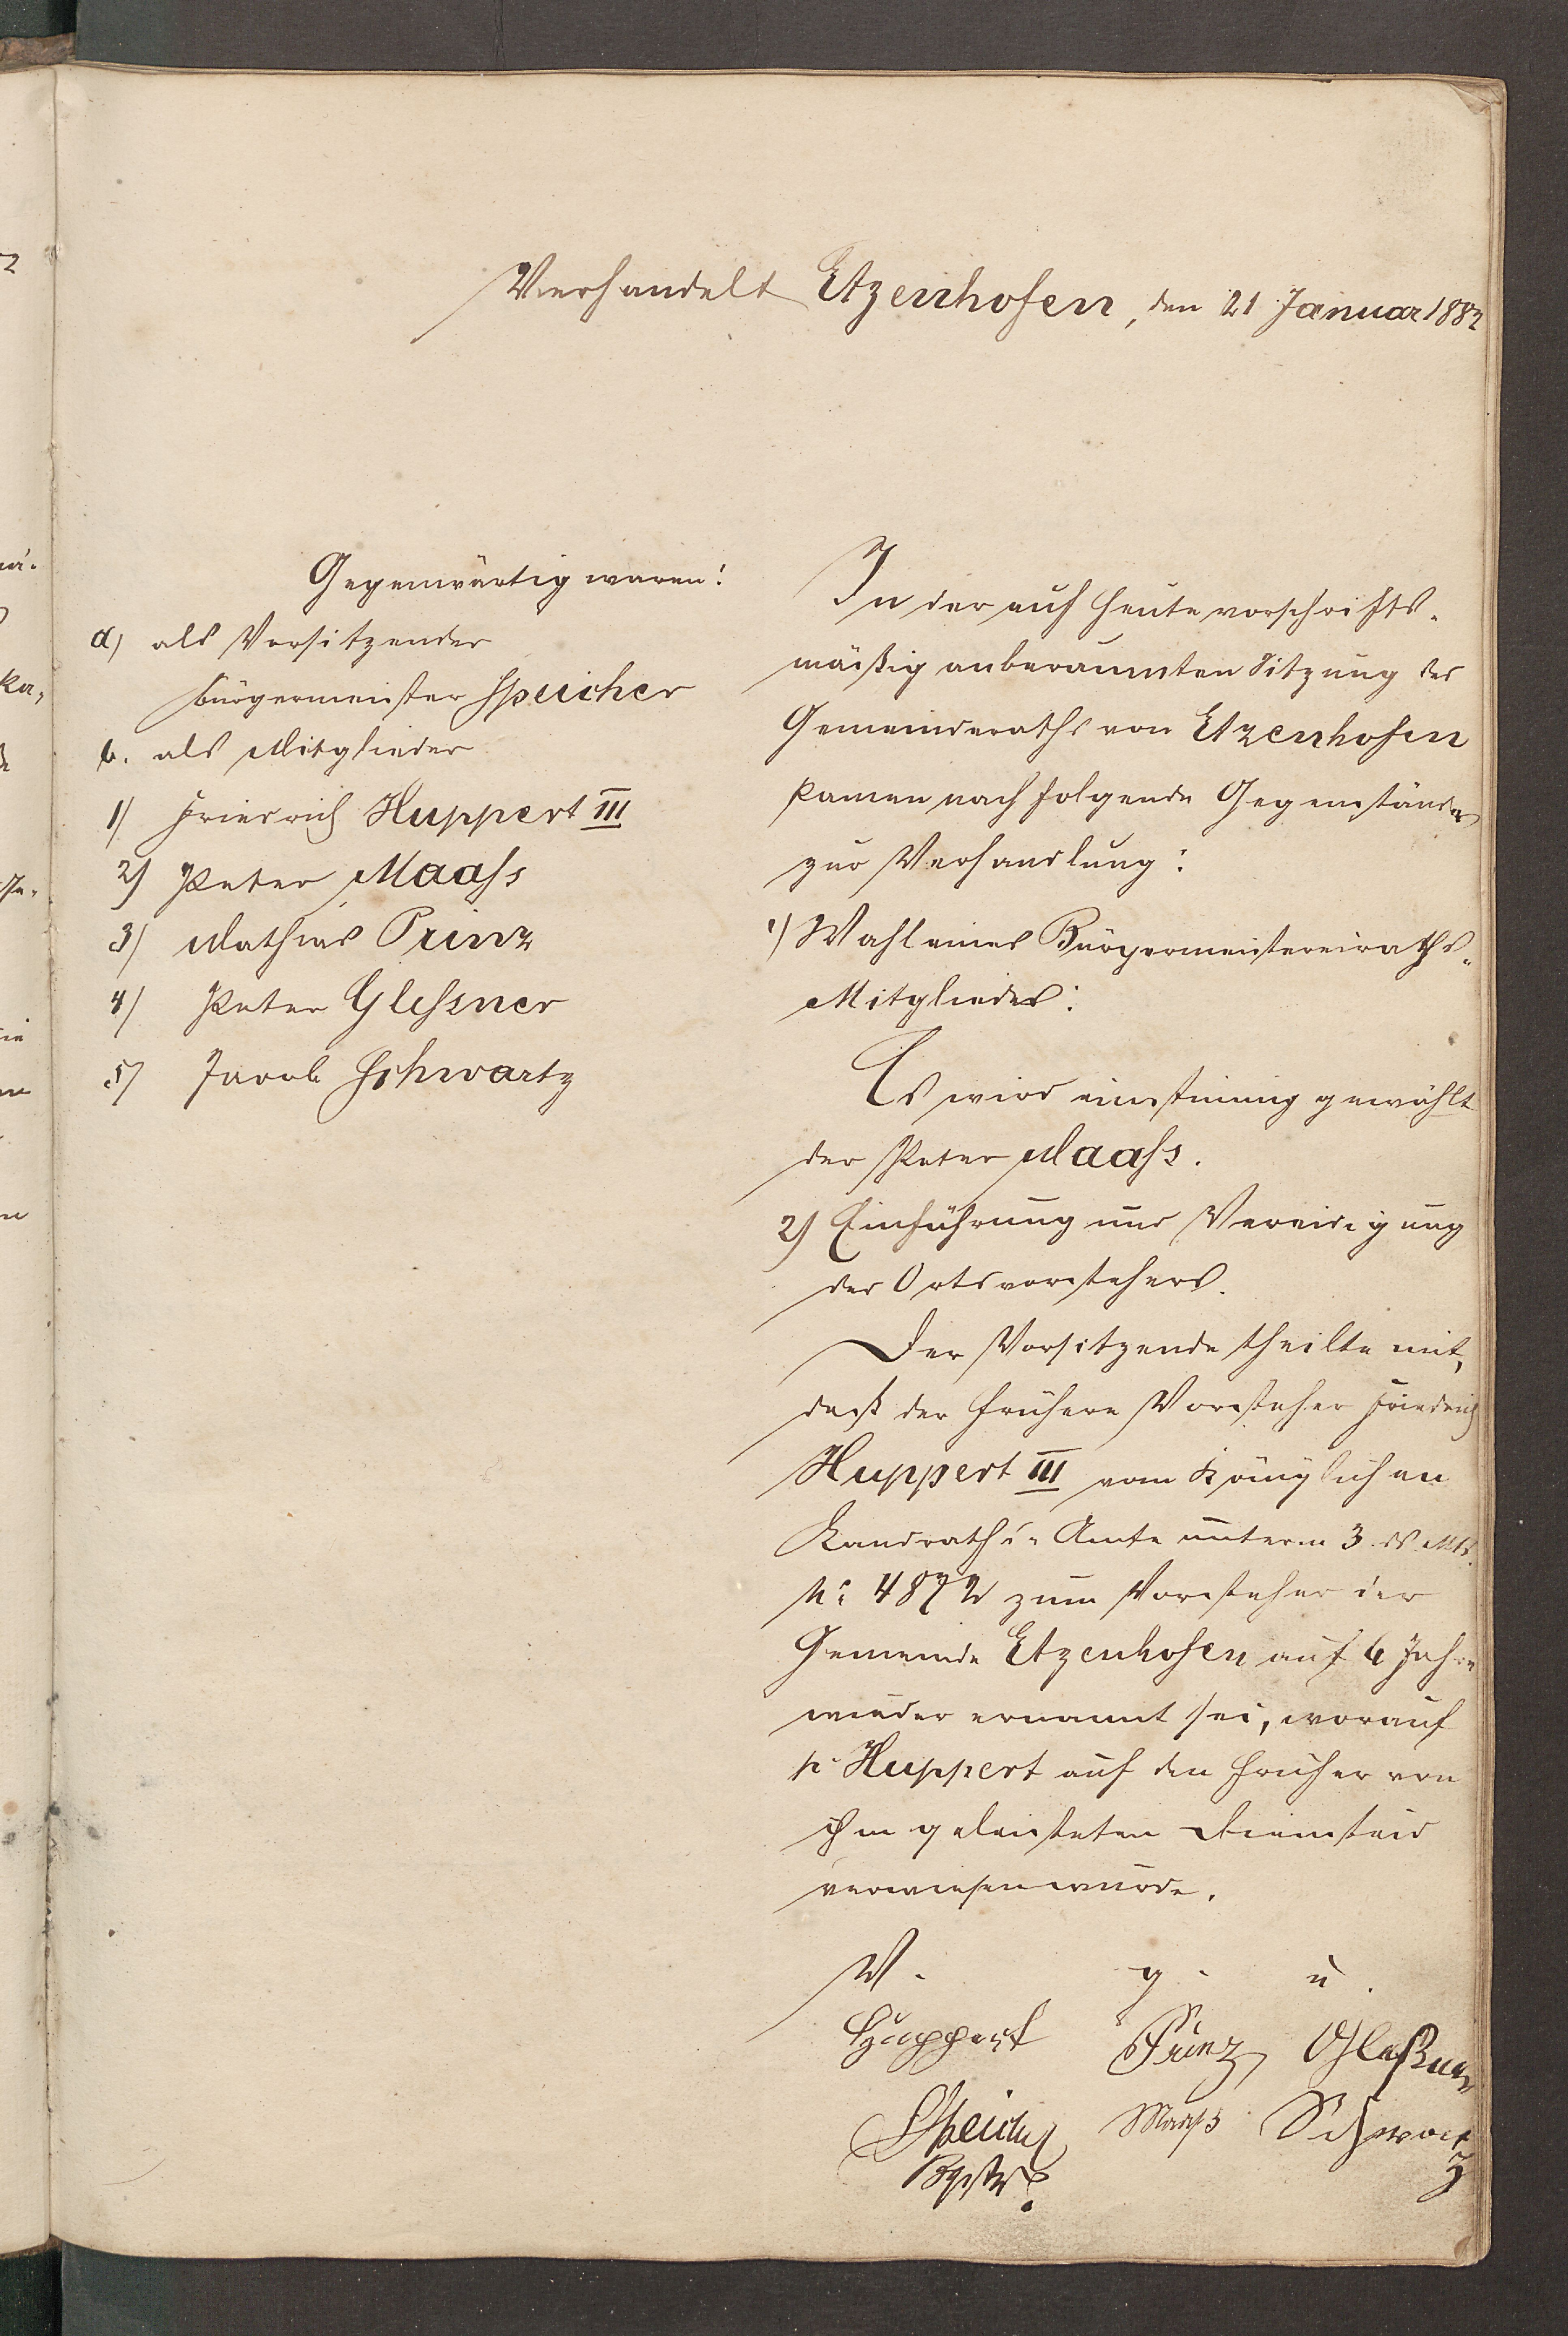 Verhandelt Etzenhofen, den 21 Januar 1882
Gegenwärtig waren:
a) als Vorsitzender
Bürgermeister Speicher
b. als Mitglieder
1) Friedrich Huppert III
2) Peter Maaſs
3) Mathias Prinz
4) Peter Gleſsner
5) Jacob Schwartz
In der auf heute vorschrifts-
mäßig anberaumten Sitzung des
Gemeinderaths von Etzenhofen
kamen nachfolgende Gegenstände
zur Verhandlung:
1) Wahl eines Bürgermeistereiraths-
Mitgliedes:
Es wird einstimmig gewählt
der Peter Maaſs.
2) Einführung und Vereidigung
des Ortsvorstehers.
Der Vorsitzende theilte mit,
daß der frühere Vorsteher Friedrich
Huppert III vom Königlichen
Landraths-Amte unterm 3. ds. Mts.
№ 4872 zum Vorsteher der
Gemeinde Etzenhofen auf 6 Jahre
wieder ernannt sei, worauf
p. Huppert auf den früher von
ihm geleisteten Diensteid
verwiesen wurde.
V. g. u.
Huppert Prinz Gleßner
Speicher Maaß Schwartz